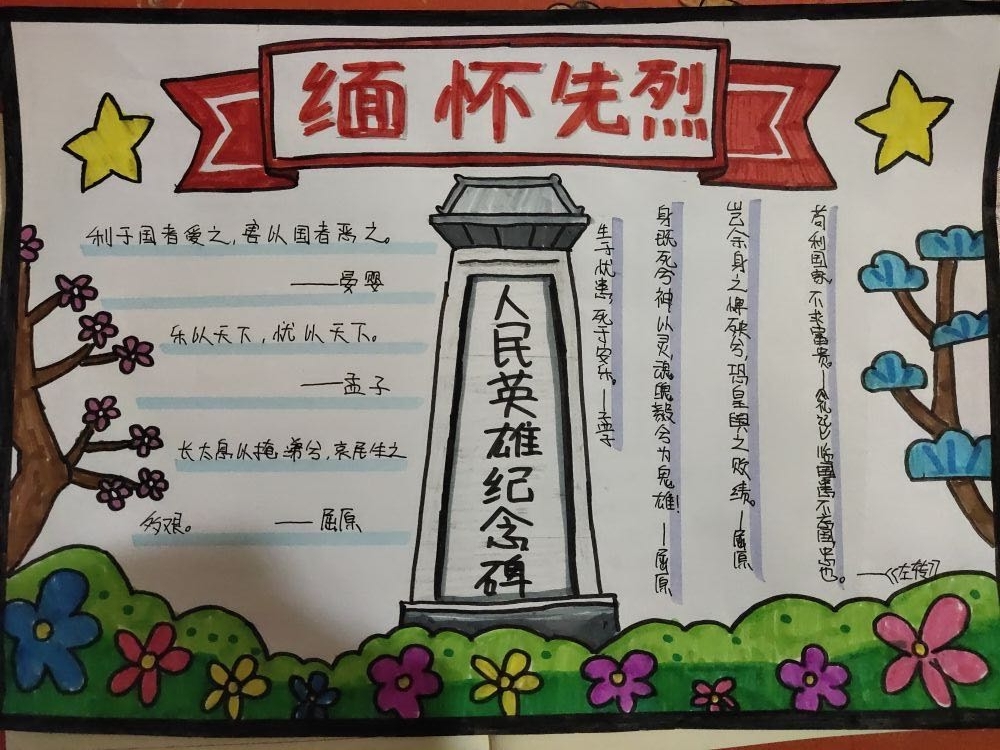 缅怀先烈
利于国者爱之,害以国者恶之。
——晏婴
乐以天下,忧以天下。
——孟子
长太息以掩涕兮,哀民生之
多艰。 ——屈原
人民英雄纪念碑
生于忧患,死于安乐。—孟子
身既死兮神以灵,魂魄毅兮为鬼雄!—屈原
岂余身之惮殃兮,恐皇舆之败绩。—屈原
苟利国家 不求富贵。—《礼记》临患不忘国,忠也。
——《左转》